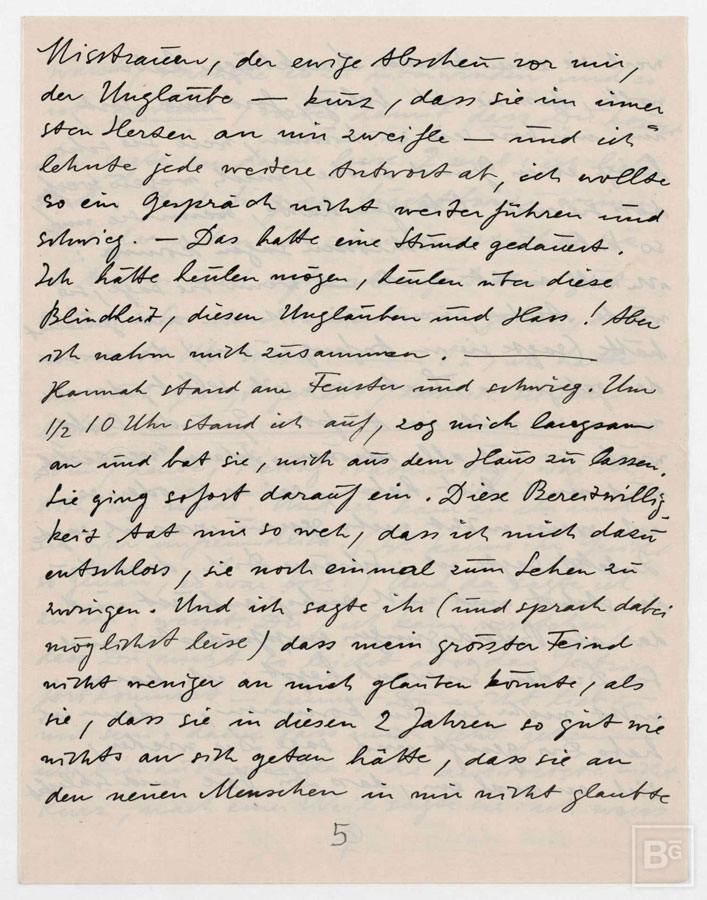 Misstrauen, der ewige Abscheu vor mir,
der Unglaube — kurz, dass sie im inner
sten Herzen an mir zweifle — und ich
lehnte jede weitere Antwort ab, ich wollte
so ein Gespräch nicht weiterführen und
schwieg. — Das hatte eine Stunde gedauert.
Ich hätte heulen mögen, heulen über diese
Blindheit, diesen Unglauben und Hass! Aber
ich nahm mich zusammen. ———
Hannah stand am Fenster und schwieg. Um
1/2 10 Uhr stand ich auf, zog mich langsam
an und bat sie, mich aus dem Haus zu lassen.
Sie ging sofort darauf ein. Diese Bereitwillig
keit tat mir so weh, dass ich mich dazu
entschloss, sie noch einmal zum Sehen zu
zwingen. Und ich sagte ihr (und sprach dabei
möglichst leise) dass mein grösster Feind
nicht weniger an mich glauben könnte, als
sie, dass sie in diesen 2 Jahren so gut wie
nichts an sich getan hätte, dass sie an
den neuen Menschen in mir nicht glaubte
5
BG